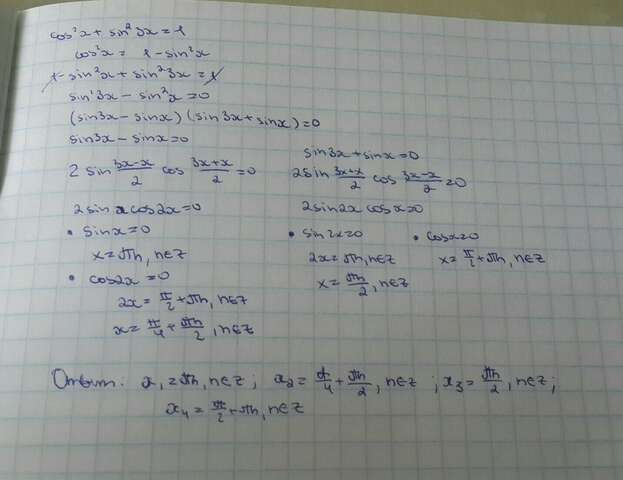 cos²x + sin²3x = 1
cos²x = 1 - sin²x
1 - sin²x + sin²3x = 1
sin²3x - sin²x = 0
(sin3x - sinx)(sin3x + sinx) = 0
sin3x - sinx = 0
2 sin (3x-x)/2 cos (3x+x)/2 = 0
2 sin x cos 2x = 0
• sin x = 0
x = πn, n∈Z
• cos2x = 0
2x = π/2 + πn, n∈Z
x = π/4 + πn/2, n∈Z
sin3x + sinx = 0
2 sin (3x+x)/2 cos (3x-x)/2 = 0
2 sin2x cos x = 0
• sin2x = 0
2x = πn, n∈Z
x = πn/2, n∈Z
• cosx = 0
x = π/2 + πn, n∈Z
Ответ: x₁ = πn, n∈Z; x₂ = π/4 + πn/2, n∈Z; x₃ = πn/2, n∈Z;
x₄ = π/2 + πn, n∈Z